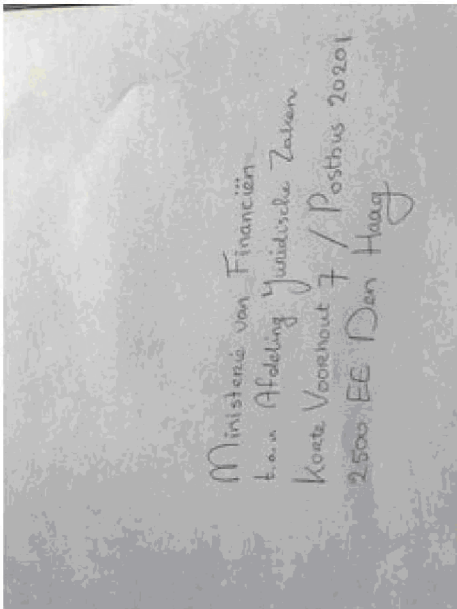 Ministerie van Financiën
t.a.v Afdeling Juridische Zaken
Korte Voorhout 7 / Postbus 20201
2500 EE Den Haag